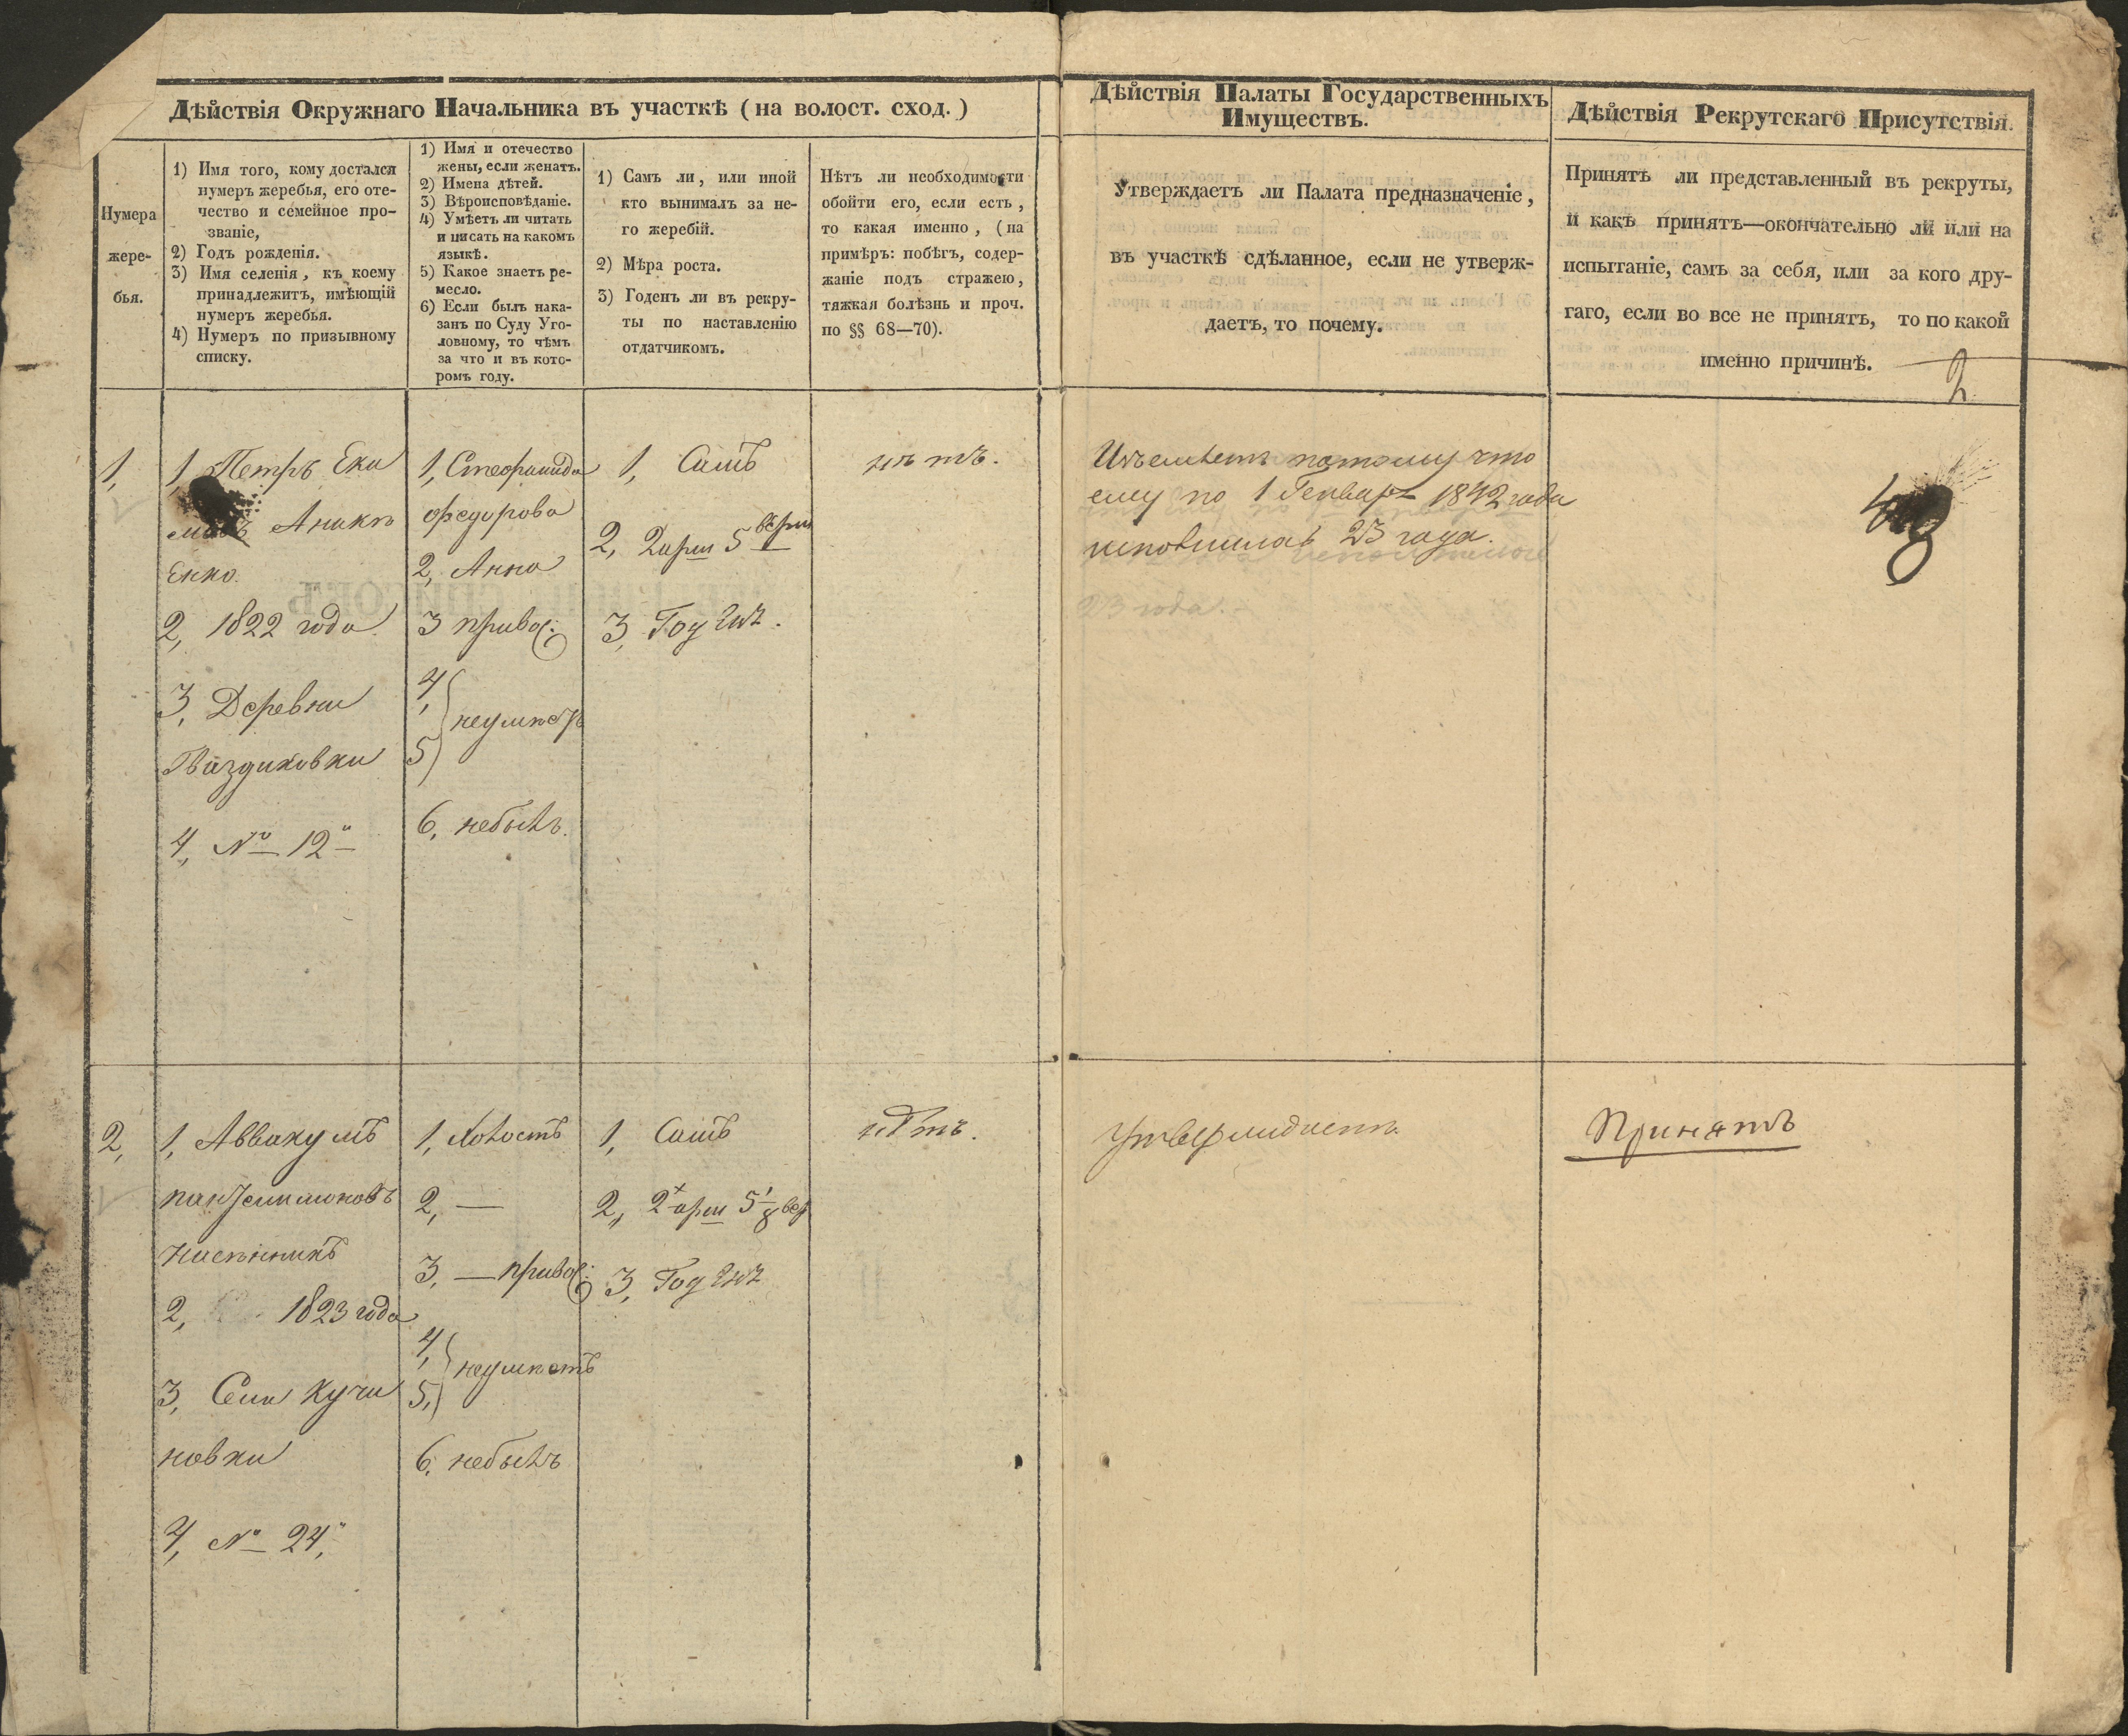 Дѣйствія Окружнаго Начальника въ участкѣ (на волост. сход.)
Нумера
жере-
бья.
1) Имя того, кому достался
нумеръ жеребья, его оте-
чество и семейное про-
званіе,
2) Годъ рожденія.
3) Имя селенія, къ коему
принадлежитъ, имѣющій
нумеръ жеребья.
4) Нумеръ по призывному
списку.
1) Имя и отечество
жены, если женатъ.
2) Имена дѣтей.
3) Вѣроисповѣданіе.
4) Умѣетъ ли читать
и писать на какомъ
языкѣ.
5) Какое знаетъ ре-
месло.
6) Если былъ нака-
занъ по Суду Уго-
ловному, то чѣмъ
за что и въ кото-
ромъ году.
1) Самъ ли, или иной
кто вынималъ за не-
го жеребій.
2) Мѣра роста.
3) Годенъ ли въ рекру-
ты по наставленію
отдатчикомъ.
Нѣтъ ли необходимости
обойти его, если есть,
то какая именно, (на
примѣръ: побѣгъ, содер-
жаніе подъ стражею,
тяжкая болѣзнь и проч.
по §§ 68—70).
Дѣйствія Палаты Государственныхъ
Имуществъ.
Утверждаетъ ли Палата предназначеніе,
въ участкѣ сдѣланное, если не утверж-
даетъ, то почему.
Дѣйствія Рекрутскаго Присутствія.
Принятъ ли представленный въ рекруты,
и какъ принятъ—окончательно ли или на
испытаніе, самъ за себя, или за кого дру-
гаго, если во все не принятъ, то по какой
именно причинѣ.
2
1,
1, Петръ Еки
мовъ Аникѣ
енко.
2, 1822 года.
3, Деревни
Гваздиковки
4, № 12"
1, Стефанида
федорова
2, Анна
3 православ:
4,
5) неумѣетъ
6, небылъ.
1, Самъ
2, 2 арш 5 верш
3, Годенъ.
нѣтъ.
потому что
ему по 1 Генваря 1842 года
неполнилось 23 года.
2,
1, Аввакумъ
пантелимоновъ
2, 1823 года
3, Села Кучи
новки
4, № 24,"
1, Холостъ
2, —
3, — правос:
4,
5,) неумѣетъ
6, небылъ
1, Самъ
2, 2 арш 5 1/8 вер
3, Годенъ
нѣтъ.
Утверждаетъ.
Принятъ